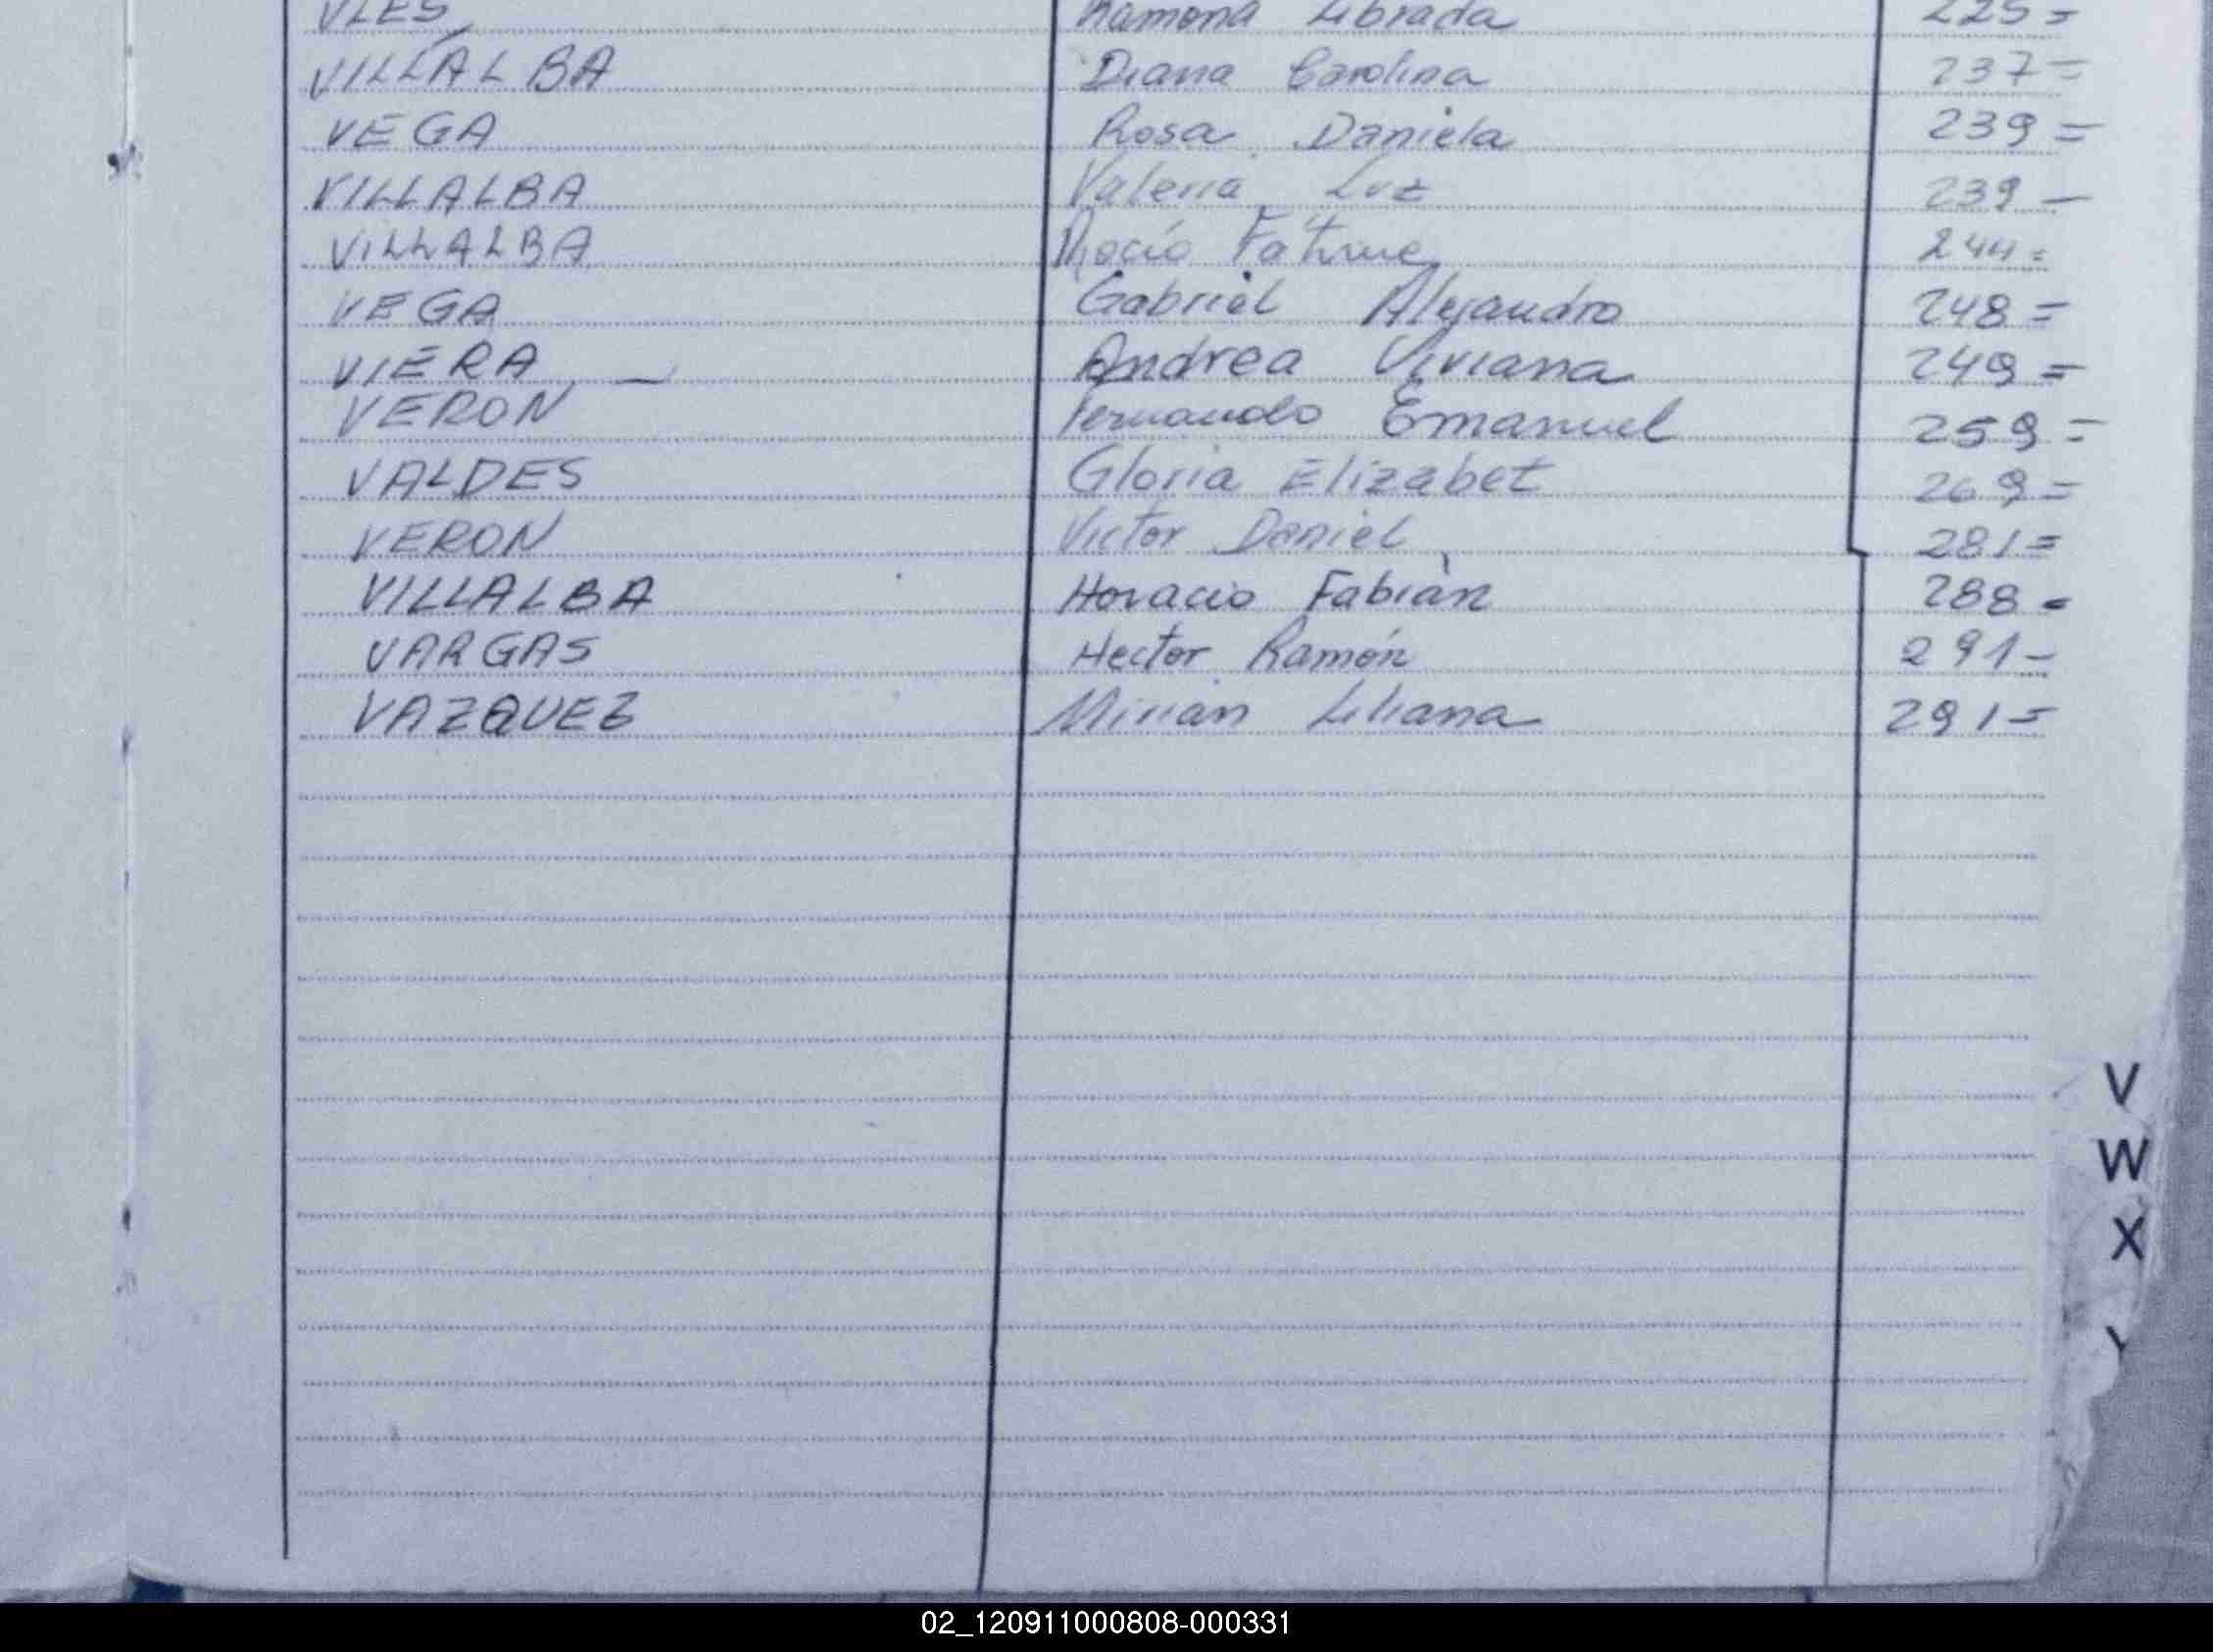 VLES Ramona Librada 225=
VILLALBA Diana Carolina 237=
VEGA Rosa Daniela 239=
VILLALBA Valeria Luz 239-
VILLALBA Rocío 244=
VEGA Gabriel Alejandro 248=
VIERA - Andrea Viviana 249=
VERON Fernando Emanuel 259=
VALDES Gloria Elizabet 269=
VERON Victor Daniel 281=
VILLALBA Horacio Fabián 288=
VARGAS Hector Ramón 291-
VAZQUEZ Mirian Liliana 291=
V
W
X
Y
02_120911000808-000331